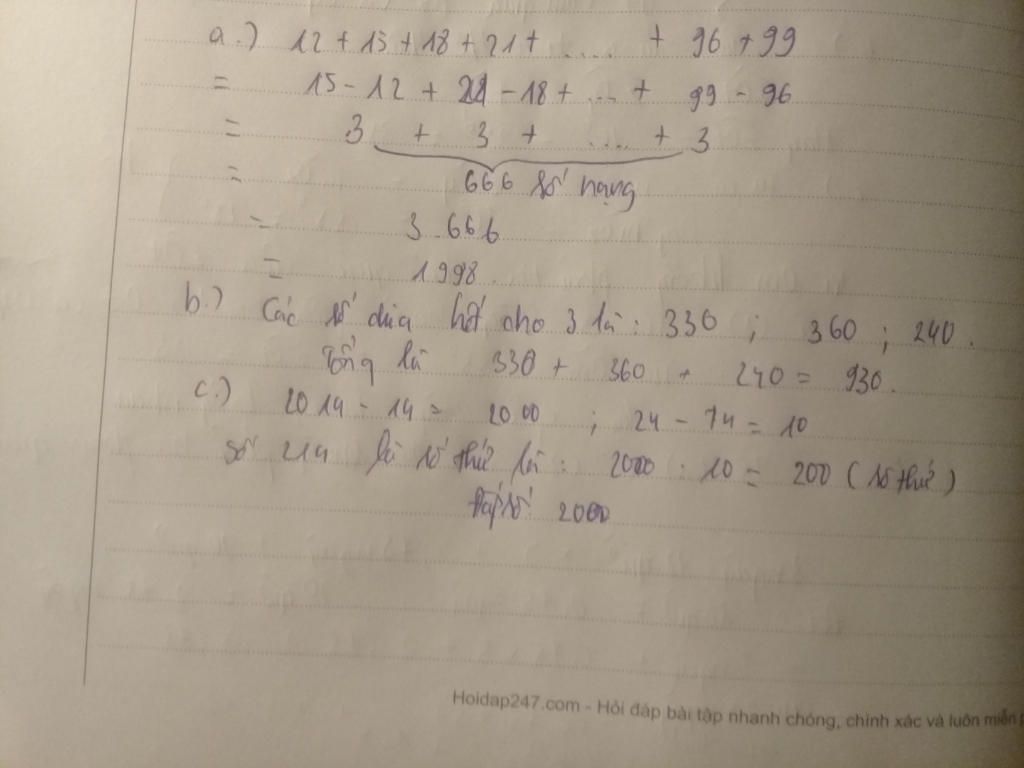 a.) 12 + 15 + 18 + 21 + ..... + 96 + 99
= 15 - 12 + 21 - 18 + ... + 99 - 96
= 3 + 3 + ..... + 3
= 666 số hạng
= 3 . 666
= 1998
b.) Các số chia hết cho 3 là : 330 ; 360 ; 240 .
Tổng là 330 + 360 + 240 = 930 .
c.) 2014 - 14 = 2000 ; 24 - 74 = 10
Số 214 là số thứ là : 2000 : 10 = 200 ( số thứ )
Đáp số 2000
Hoidap247.com - Hỏi đáp bài tập nhanh chóng, chính xác và luôn miễn